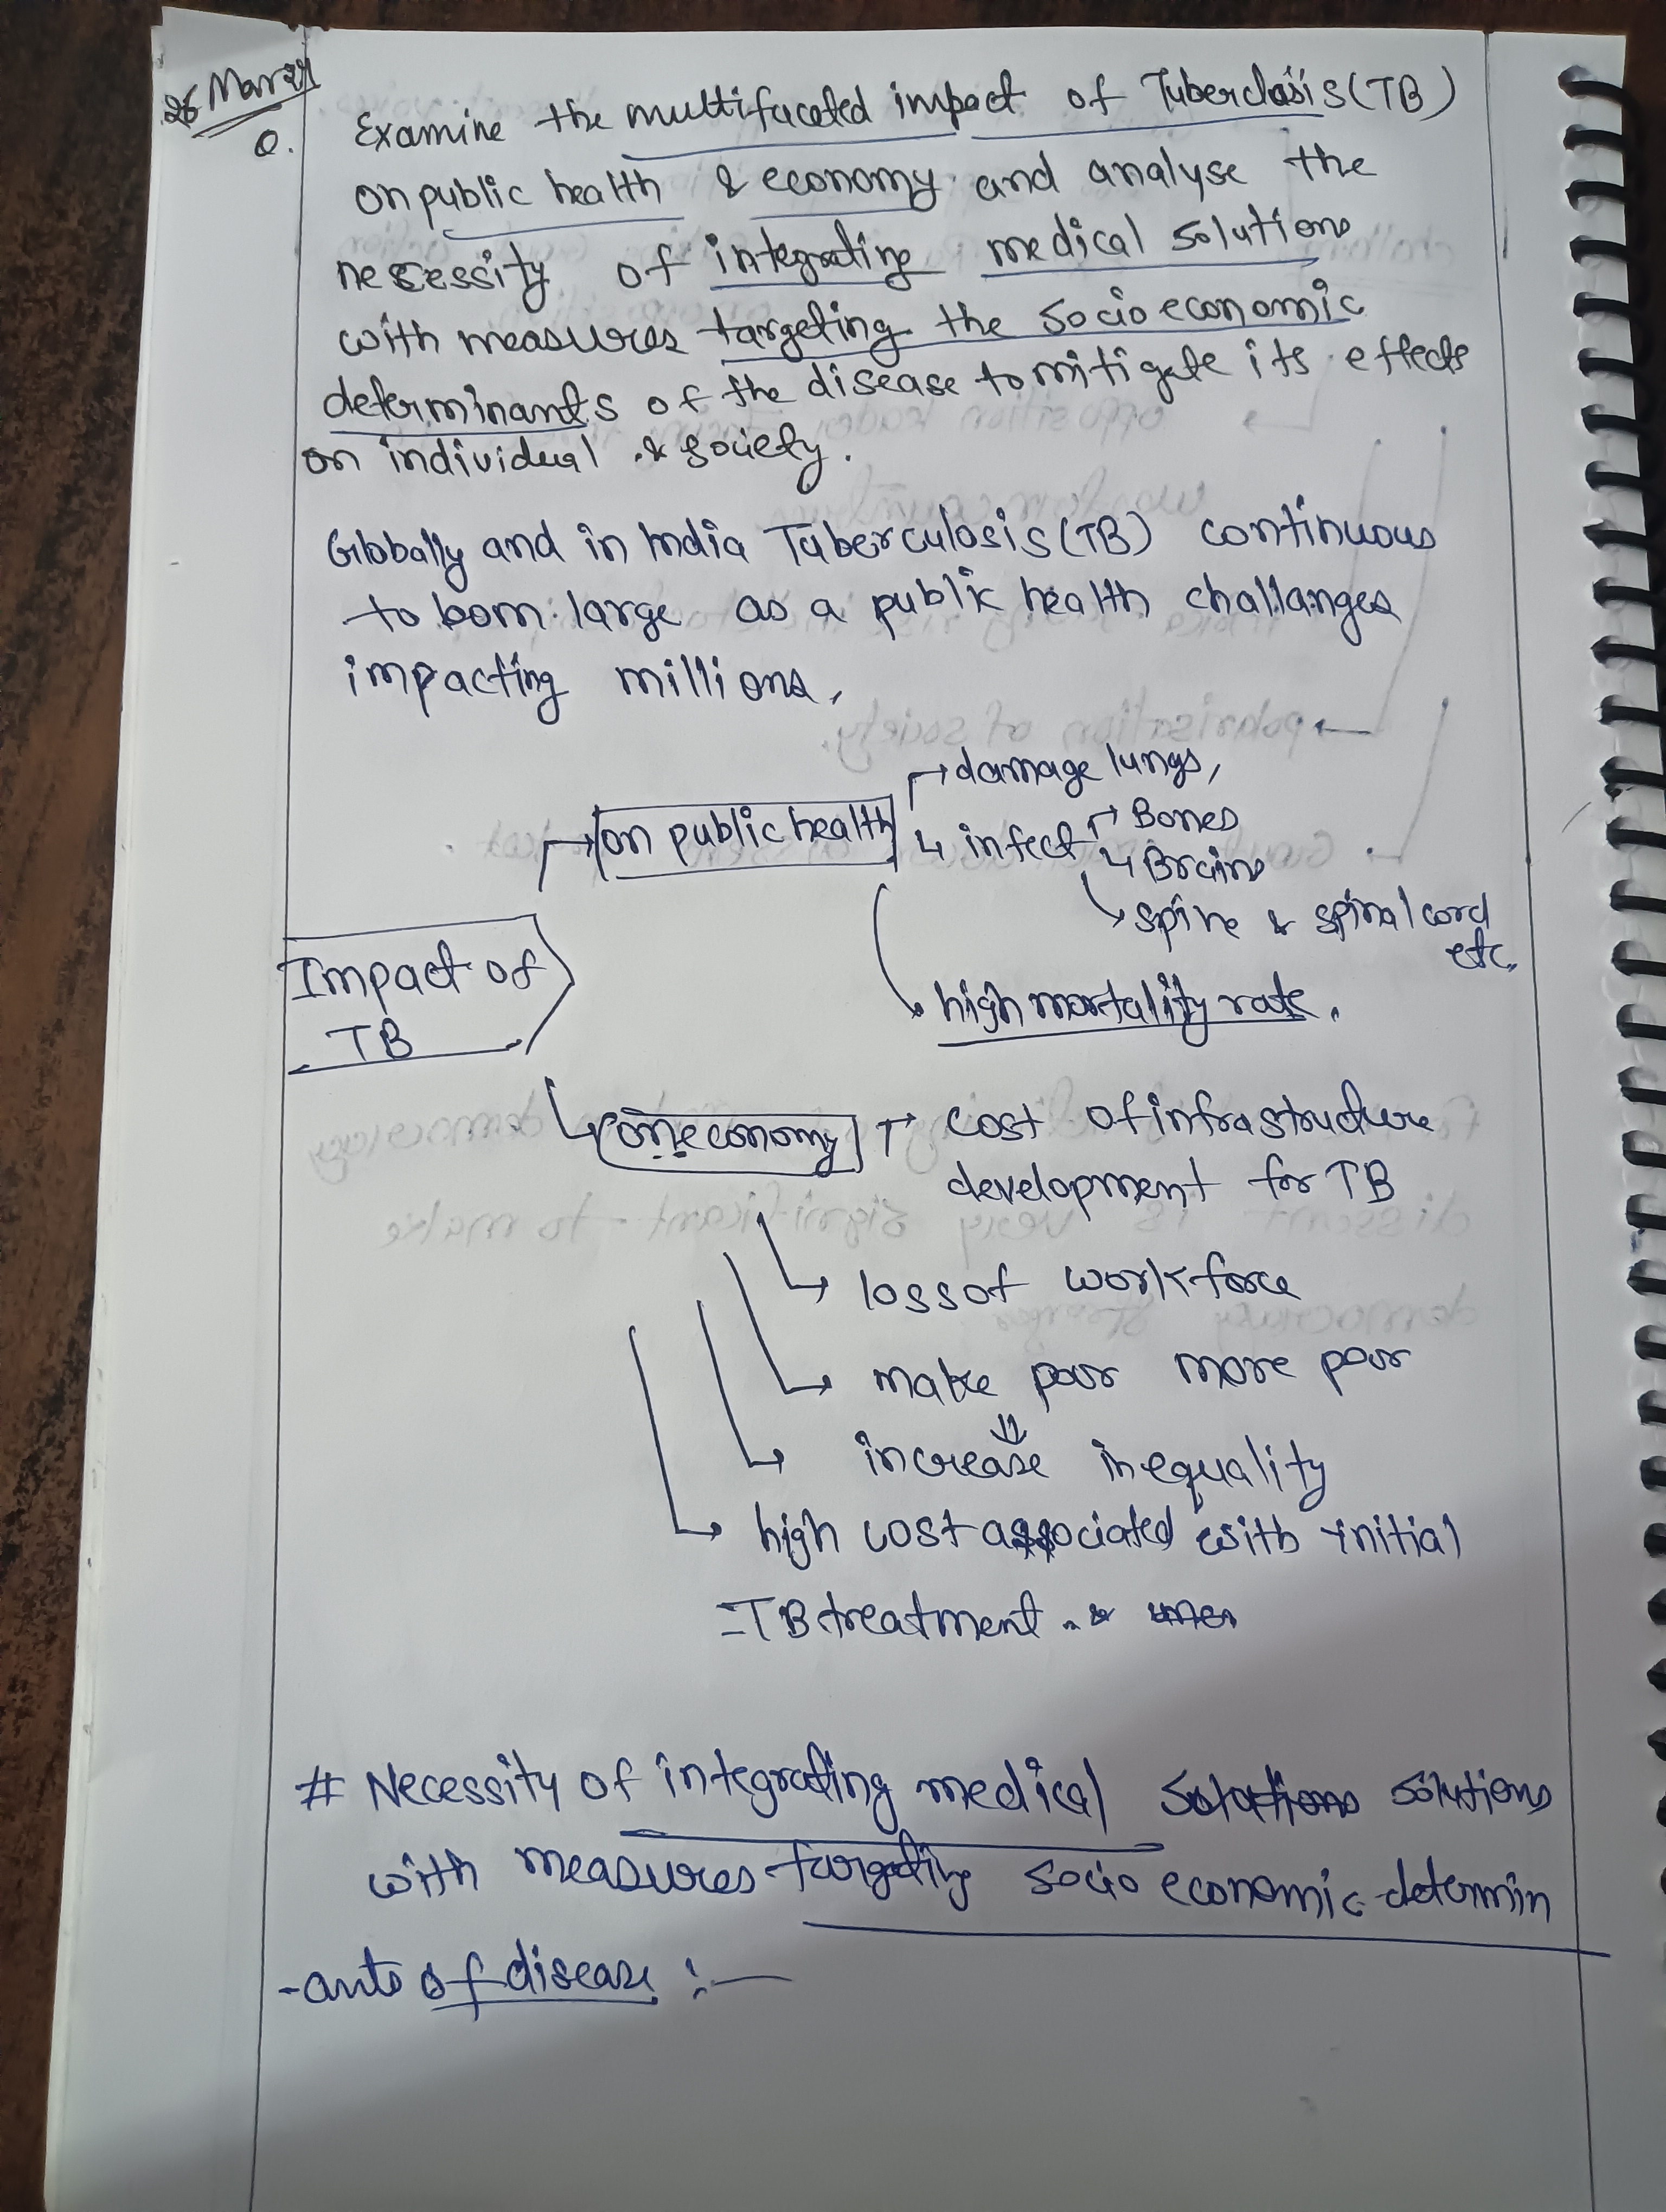 26 Mar 24
Q. Examine the multifaceted impact of Tuberclosis (TB)
on public health & economy and analyse the
necessity of integrating medical solutions
with measures targeting the socio economic
determinants of the disease to mitigate its effects
on individual & society.
Globally and in India Tuberculosis (TB) continuous
to loom large as a public health challanges
impacting millions,
Impact of
TB
on public health
damage lungs,
infect
Bones
Brains
spine & spinal cord
etc.
high mortality rate.
on economy
cost of infrastructure
development for TB
loss of workforce
make poor more poor
increase inequality
high cost associated with initial
TB treatment.
# Necessity of integrating medical solutions solutions
with measures targeting socio economic determin
-ants of disease :—